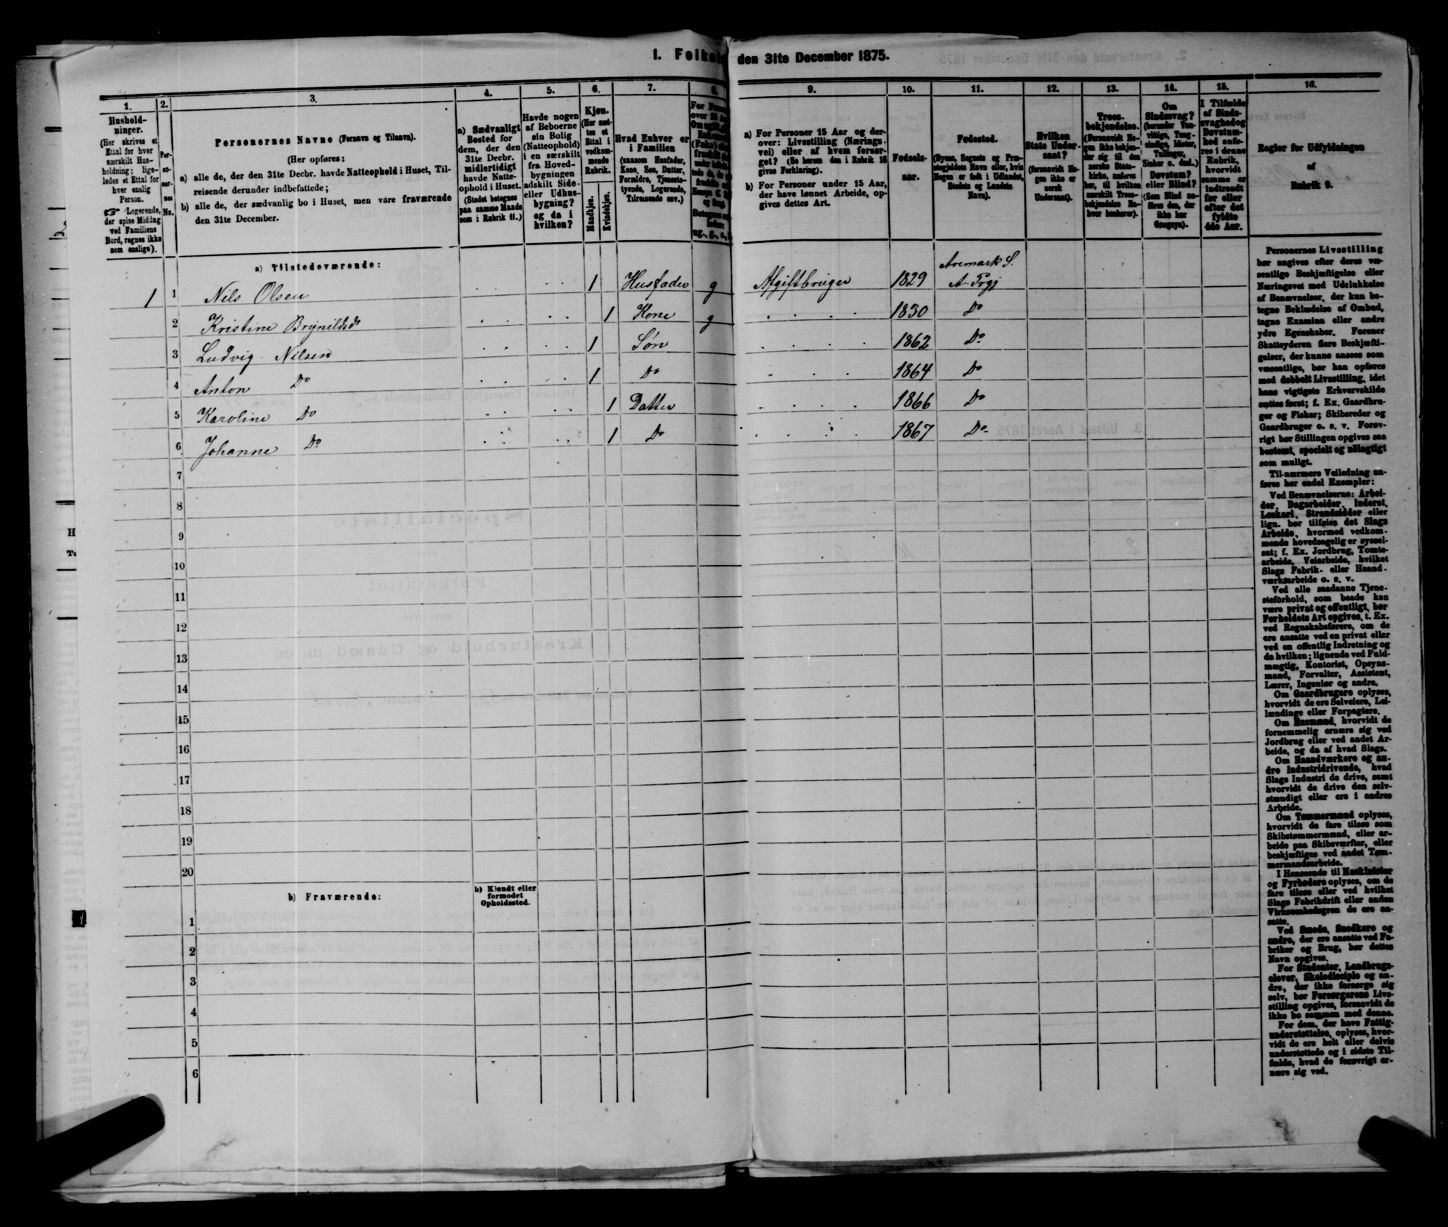 I. Folke
den 31te December 1875.
1.
2.
3.
4.
5.
6.
7.
8.
9.
10.
11.
12.
13.
14.
15.
16.
Husholdninger.
(Her skrives et Ettal for hver særskilt Husholdning; ligeledes et Ettal for hver enslig Person.
☞ Logerende, der spise Middag ved Familiens Bord, regnes ikke som enslige).
Personernes No.
Personernes Navne (Fornavn og Tilnavn).
(Her opføres:
a) alle de, der den 31te Decbr. havde Natteophold i Huset, Tilreisende derunder indbefattede;
b) alle de, der sædvanlig bo i Huset, men vare fraværende den 31te December.
a) Sædvanligt Bosted for dem, der den 31te Decbr. midlertidigt havde Natteophold i Huset.
(Stedet betegnes paa samme Maade som i Rubrik 11.)
Havde nogen af Beboerne sin Bolig (Natteophold) i en særskilt fra Hovedbygningen adskilt Side- eller Udhusbygning? og da i hvilken?
Kjøn.
(Her sættes et Ettal i vedkommende Rubrik.
Mandkjøn.
Kvindekjøn.
Hvad Enhver er i Familien
(saasom Husfader, Kone, Søn, Datter, Forældre, Tjenestetyende, Logerende, Tilreisende osv.)
a) For Personer 15 Aar og derover: Livsstilling (Næringsvei) eller af hvem forsørget? (Se herom den i Rubrik 16 givne Forklaring).
b) For Personer under 15 Aar, der have lønnet Arbeide, opgives dettes Art.
Fødselsaar.
Fødested.
(Byens, Sognets og Præstegjeldets Navn eller, hvis Nogen er født i Udlandet, Stedets og Landets Navn).
Hvilken Stats Undersaat?
(forsaavidt Nogen ikke er norsk Undersaat).
Troesbekjendelse.
(Forsaavidt Nogen ikke bekjender sig til den norske Statskirke, anføres her, til hvilken særskilt Troesbekjendelse Enhver henhører).
Om Sindssvag?
Døvstum? eller Blind?
I Tilfælde af Sindssvaghed og Døvstumhed anføres i denne Rubrik, hvorvidt samme er indtraadt før eller efter det fyldte 4de Aar.
Regler for Udfyldningen
af
Rubrik 9.
a) Tilstedeværende:
1 1 Nils Olsen 1 Husfader g Afgiftbruger 1829 Aremark S. A. Prgj
2 Kristine Brynildsd 1 Kone g 1830 Do
3 Ludvig Nilsen 1 Søn 1862 Do
4 Anton Do 1 Do 1864 Do
5 Karoline Do 1 Datter 1866 Do
6 Johanne Do 1 Do 1867 Do
7
8
9
10
11
12
13
14
15
16
17
18
19
20
b) Fraværende:
b) Kjendt eller formodet Opholdssted.
1
2
3
4
5
6
Personernes Livsstilling bør angives efter deres væsentlige Beskjæftigelse eller Næringsvei med Udelukkelse af Benævnelser, der kun betegne Beklædelse af Ombud, tagne Examina eller andre ydre Egenskaber. Forener Skatteyderen flere Beskjæftigelser, der kunne ansees som væsentlige, bør han opføres med dobbelt Livsstilling, idet hans vigtigste Erhvervskilde sættes først; f. Ex. Gaardbruger og Fisker; Skibsreder og Gaardbruger o. s. v. Forøvrigt bør Stillingen opgives saa bestemt, specielt og nøiagtigt som muligt.
Til nærmere Veiledning anføres her endel Exempler:
Ved Benævnelserne: Arbeider, Dagarbeider, Inderst, Løskarl, Strandsidder eller lign. bør tilføies det Slags Arbeide, hvormed vedkommende hovedsagelig er sysselsat; f. Ex. Jordbrug, Tomtearbeide, Veiarbeide, hvilket Slags Fabrik- eller Haandværksarbeide o. s. v.
Ved alle saadanne Tjenesteforhold, som baade kan være privat og offentligt, bør Forholdets Art opgives, t. Ex. ved Regnskabsførere, om de ere ansatte ved en privat eller ved en offentlig Indretning og da hvilken; lignende ved Fuldmægtig, Kontorist, Opsynsmand, Forvalter, Assistent, Lærer, Ingeniør og andre.
Om Gaardbrugere oplyses, hvorvidt de ere Selveiere, Leilændinge eller Forpagtere.
Om Husmænd, hvorvidt de fornemmelig ernære sig ved Jordbrug eller ved andet Arbeide, og da af hvad Slags.
Om Haandværkere og andre Industridrivende, hvad Slags Industri de drive, samt hvorvidt de drive den selvstændigt eller ere i andres Arbeide.
Om Tømmermænd oplyses, hvorvidt de fare tilsøs som Skibstømmermænd, eller arbeide paa Skibsværfter, eller beskjæftiges ved andet Tømmermandsarbeide.
I Henseende til Maskinister og Fyrbødere oplyses, om de fare tilsøs eller ved hvilket Slags Fabrikdrift eller anden Virksomhedsgren de ere ansatte.
Ved Smede, Snedkere og andre, der ere ansatte ved Fabriker og Brug, bør dettes Navn opgives.
For Studenter, Landbrugselever, Skoledisciple og andre, der ikke forsørge sig selv, bør Forsørgerens Livsstilling opgives, forsaavidt de ikke bo sammen med denne.
For dem, der have Fattigunderstøttelse, oplyses, hvorvidt de ere helt eller delvis understøttede og i sidste Tilfælde, hvad de forøvrigt ernære sig ved.